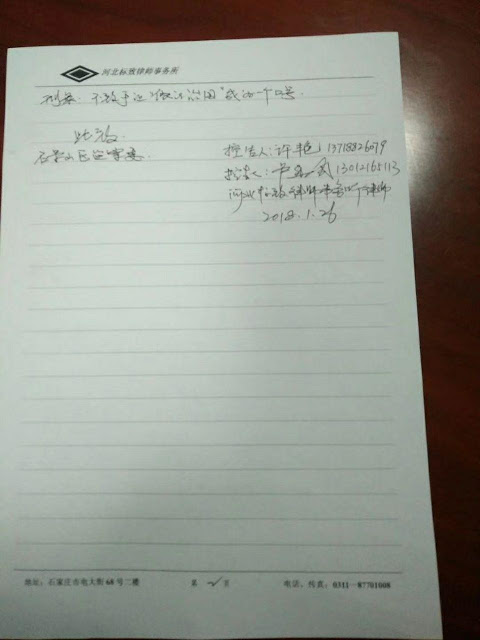 河北标致律师事务所
刑案，不放手让"依法治国"成为一个口号。
此致
石景山区监察委
控告人：许艳 13718826079
控告人：卢廷阁 13012165113
河北标致律师事务所律师
2018.1.26
地址：石家庄市电大街68号二楼 第 2 页 电话、传真：0311—87701008